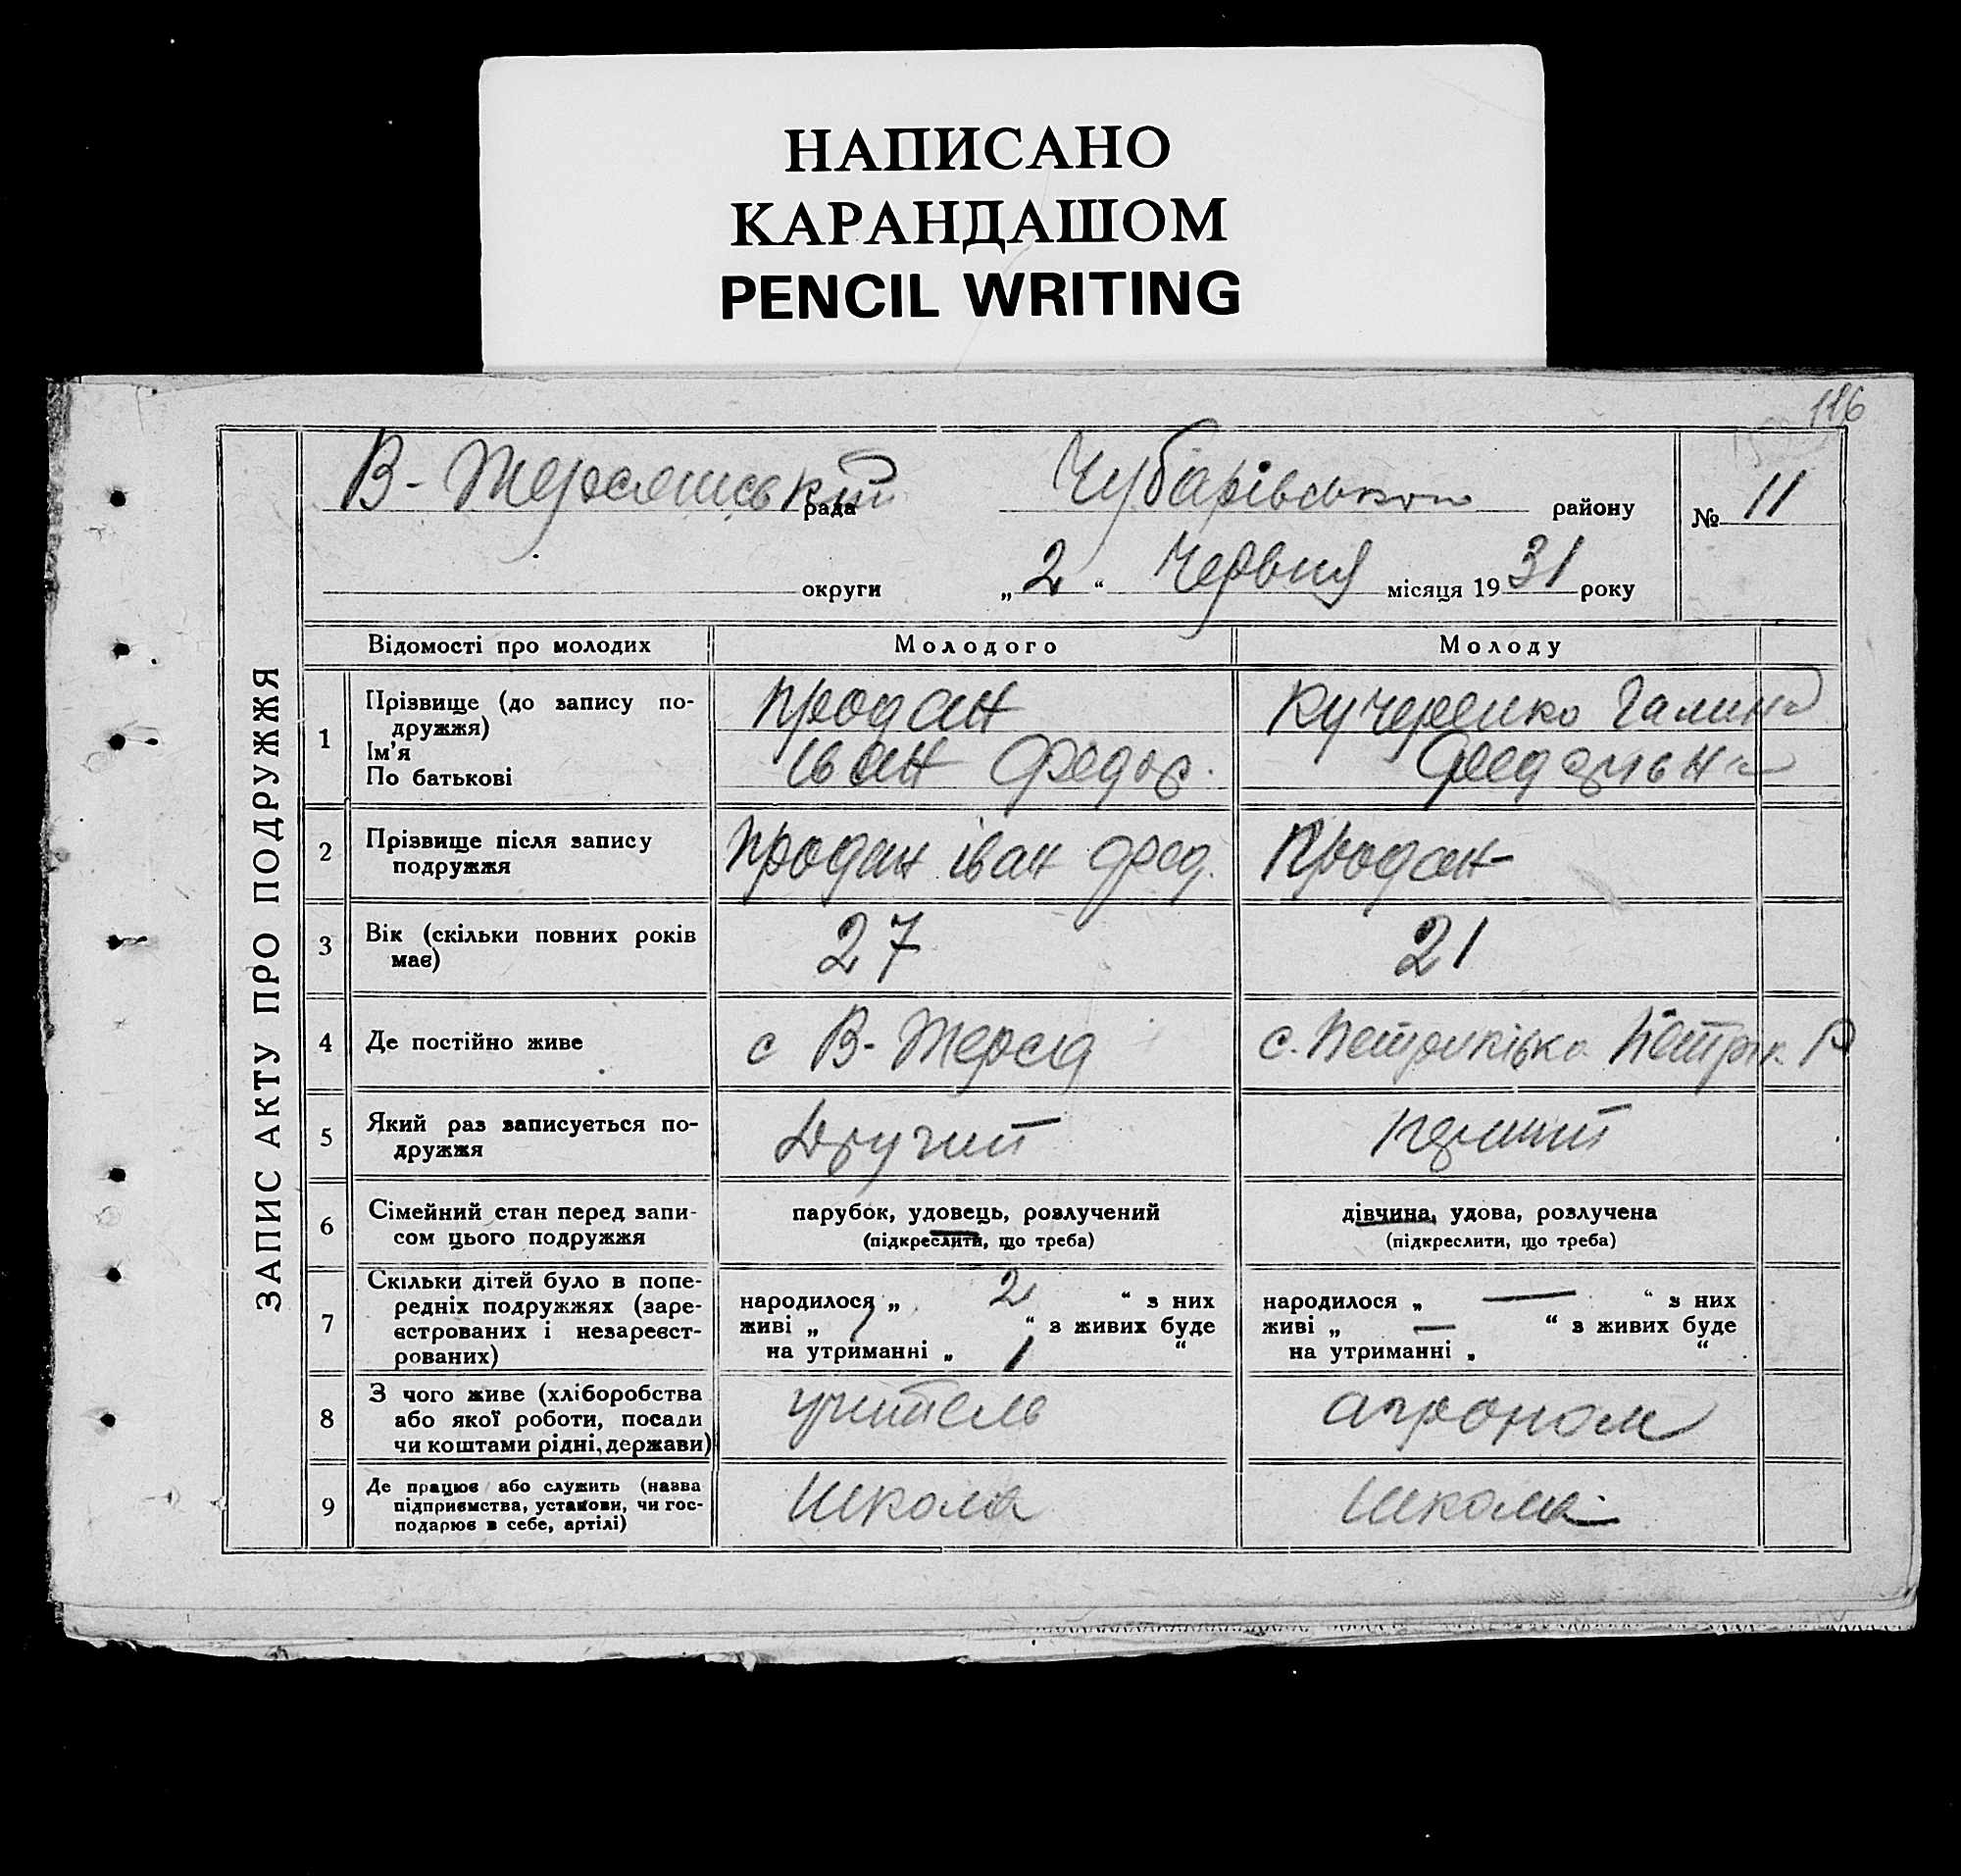 НАПИСАНО
КАРАНДАШОМ
PENCIL WRITING
116
ЗАПИС АКТУ ПРО ПОДРУЖЖЯ
В-Терсянській рада Чубарівського району № 11
округи „ 2 “ Червня місяця 19 31 року
Відомості про молодих Молодого Молоду
1 Прізвище (до запису по-
дружжя)
Ім'я
По батькові
Продан
Іван Федор.
Кучеренко Галина
2 Прізвище після запису
подружжя
Продан Іван Фед.
Продан
3 Вік (скільки повних років
має)
27
21
4 Де постійно живе
с В-Терся
с.
5 Який раз записується по-
дружжя
Другий
Перший
6 Сімейний стан перед запи-
сом цього подружжя
парубок, удовець, розлучений
(підкреслити, що треба)
дівчина, удова, розлучена
(підкреслити, що треба)
7 Скільки дітей було в попе-
редніх подружжях (заре-
єстрованих і незареєст-
рованих)
народилося „ 2 “ з них
живі „ 1 “ з живих буде
на утриманні „ 1 “
народилося „ — “ з них
живі „ — “ з живих буде
на утриманні „ “
8 З чого живе (хліборобства
або якої роботи, посади
чи коштами рідні, держави)
учитель
агроном
9 Де працює або служить (назва
підприємства, установи, чи гос-
подарює в себе, артілі)
Школа
Школа